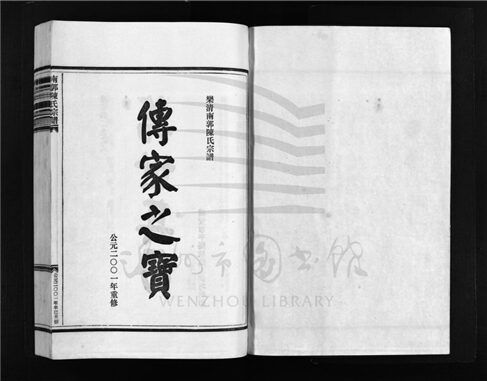 樂清南郭陳氏宗譜
傳家之寶
公元二〇〇一年重修
南郭陳氏宗譜
温州市圖書館
WENZHOU LIBRARY